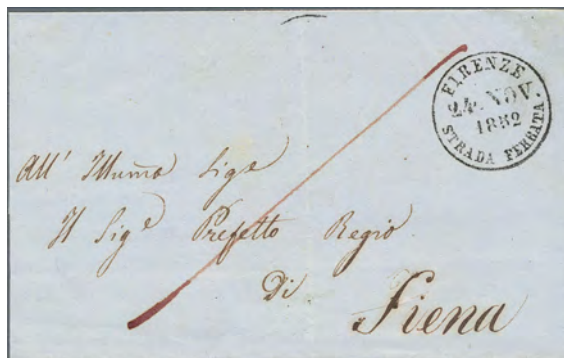 FIRENZE
24. NOV.
1852
STRADA FERRATA.
All' Illumo Sigre
Il Sige Prefetto Regio
Di
Siena